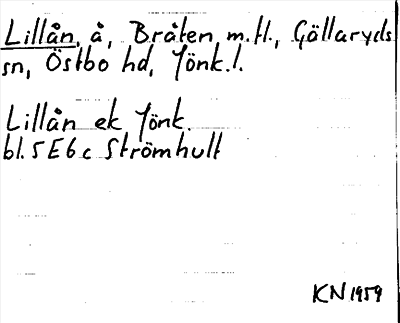 Lillån, å, Bråten m.fl., Gällaryds
sn, Östbo hd, Jönk.l.
Lillån ek Jönk.
bl. 5E6c Strömhult
KN 1959